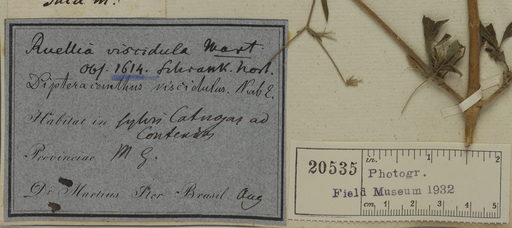 Ruellia viscidula Mart.
obs. 1614. Schrank. hort.
Dipteracanthus viscidulus. Nab E.
Habitat in sylvis Catingas ad
Contendas
Provinciae M G.
Dr. Martius Iter Brasil. Aug
20535
in. 1 2
Photogr.
Field Museum 1932
cm. 1 2 3 4 5